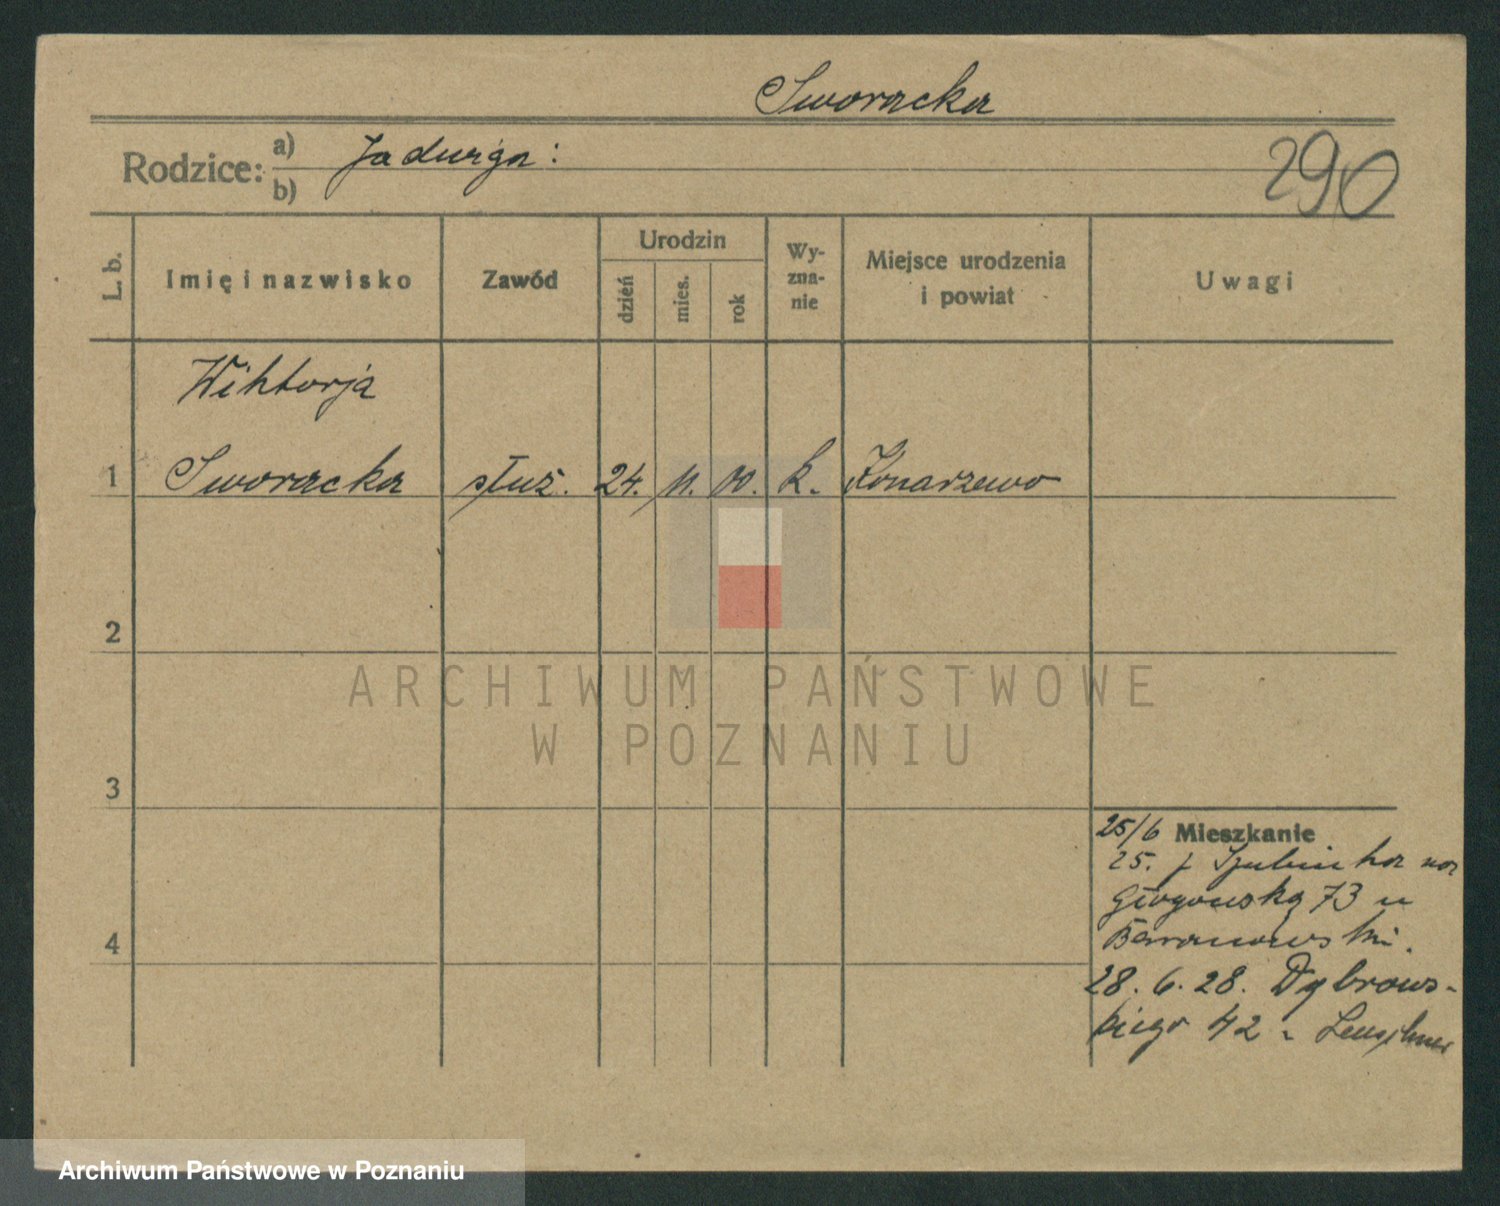 Sworacka
Rodzice: a) Jadwiga:
b)
290
L. b. Imię i nazwisko Zawód Urodzin dzień mies. rok Wy-zna-nie Miejsce urodzenia i powiat Uwagi
Wiktorja
1 Sworacka służ. 24. 11. 00. k. Konarzewo
2
ARCHIWUM PAŃSTWOWE
W POZNANIU
3
25/6 Mieszkanie
25. z Szubinka na
Głogowską 73 u
4 Baranowski.
28. 6. 28. Dąbrows-
kiego 42
Archiwum Państwowe w Poznaniu